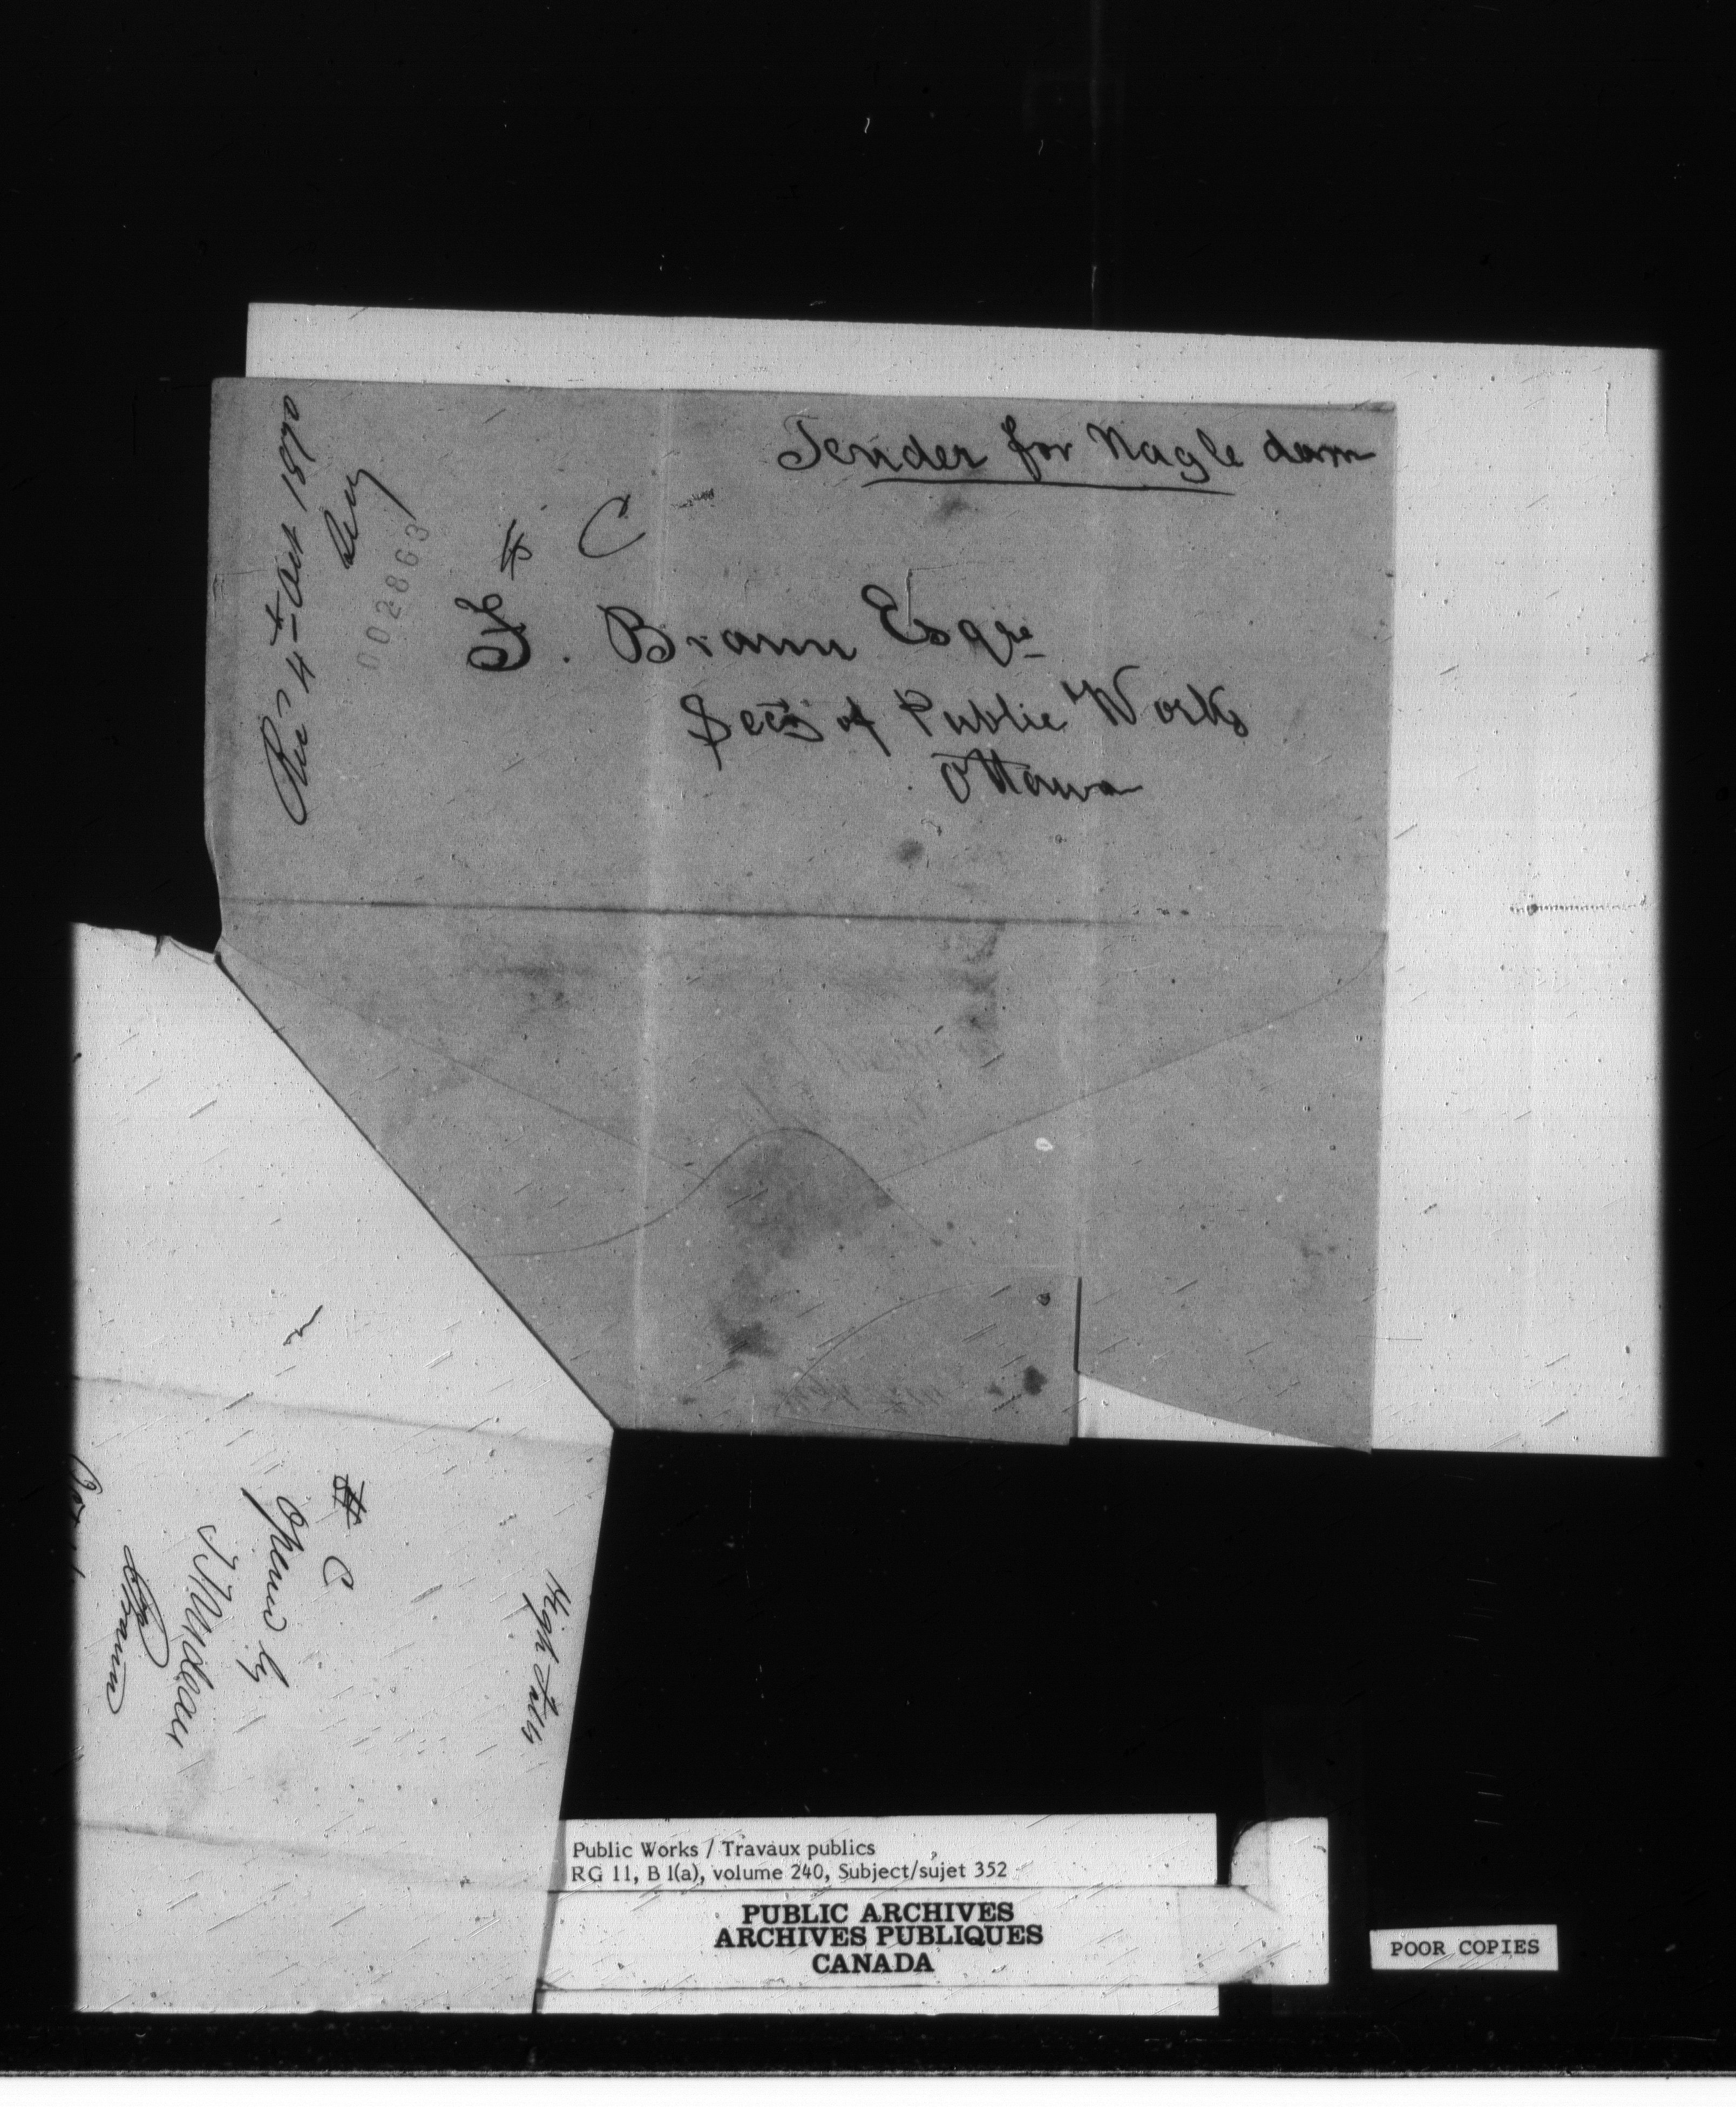 Tender for Nagle dam
Rec'd 4th Oct 1870
002863
# C
F. Braun Esqre
Secy of Public Works
Ottawa
High Falls
# C
Opened by
Braun
Public Works / Travaux publics
RG 11, B 1(a), volume 240, Subject/sujet 352
PUBLIC ARCHIVES
ARCHIVES PUBLIQUES
CANADA
POOR COPIES